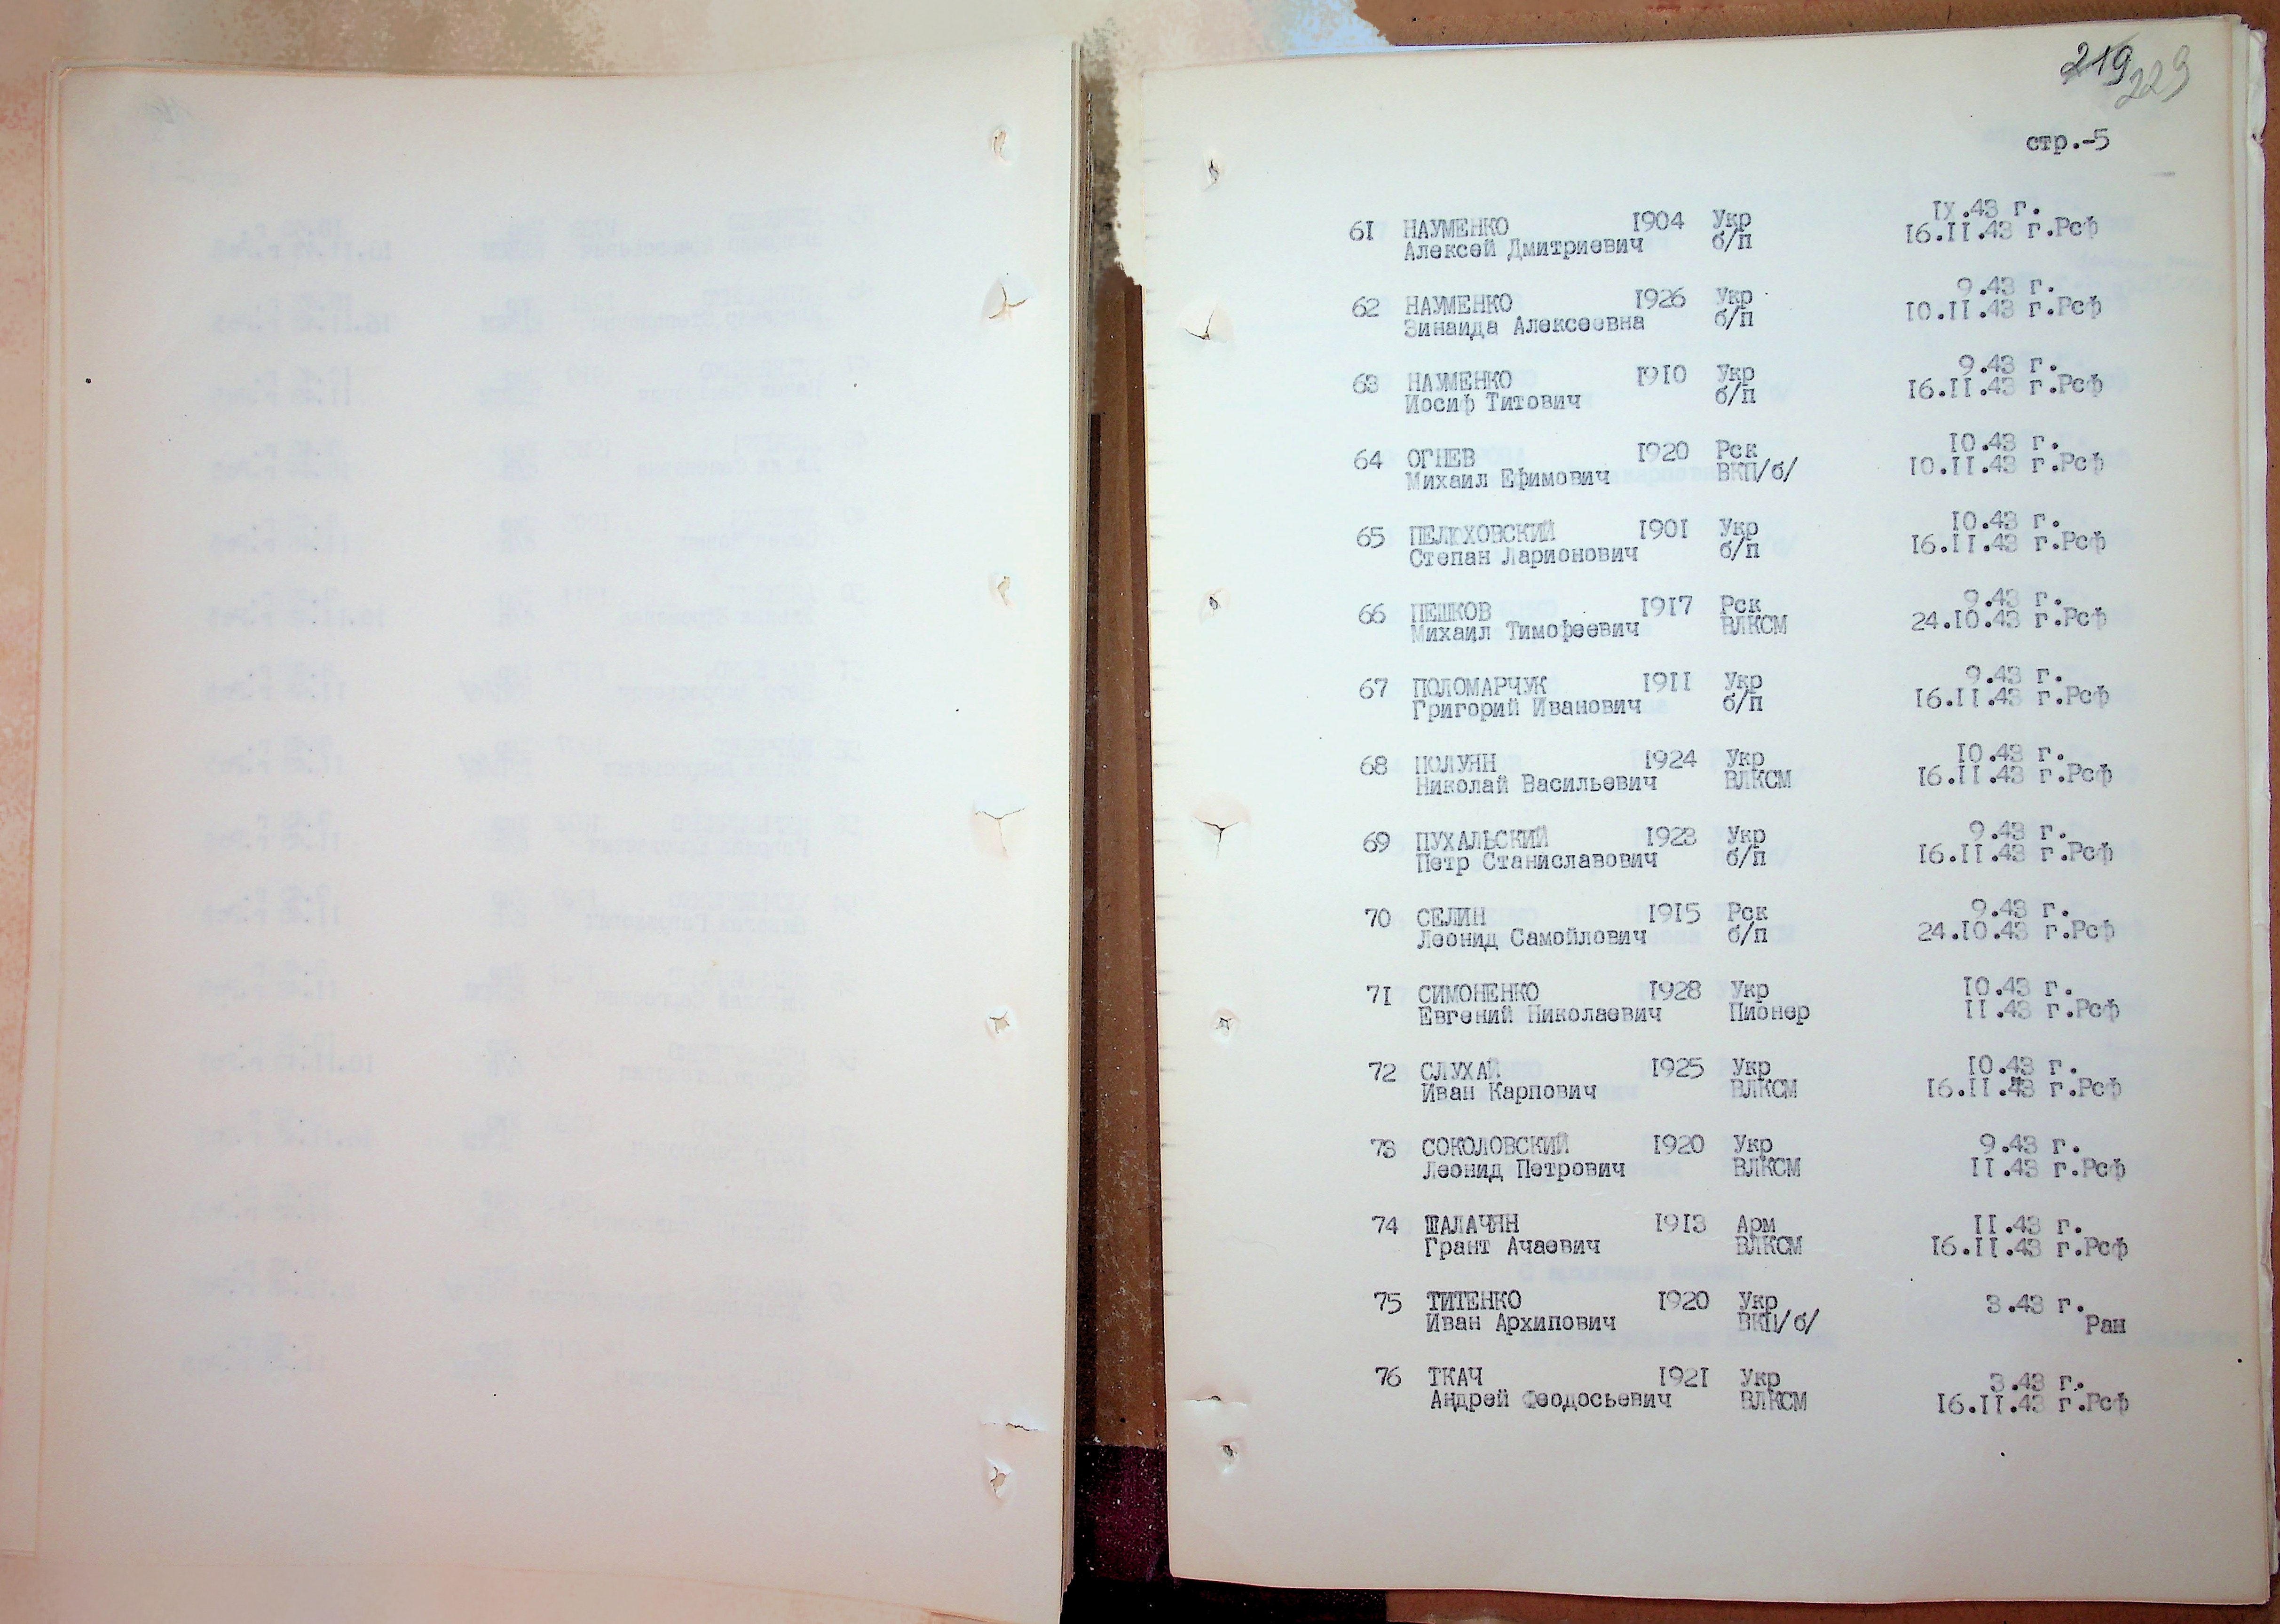 219 229
стр.-5
61 НАУМЕНКО 1904 Укр IX.43 г.
Алексей Дмитриевич б/п 16.II.43 г.Рсф
62 НАУМЕНКО 1926 Укр 9.43 г.
Зинаида Алексеевна б/п 10.II.43 г.Рсф
63 НАУМЕНКО 1910 Укр 9.43 г.
Иосиф Титович б/п 16.II.43 г.Рсф
64 ОГНЕВ 1920 Рск 10.43 г.
Михаил Ефимович ВКП/б/ 10.II.43 г.Рсф
65 ПЕЛЮХОВСКИЙ 1901 Укр 10.43 г.
Степан Ларионович б/п 16.II.43 г.Рсф
66 ПЕШКОВ 1917 Рск 9.43 г.
Михаил Тимофеевич ВЛКСМ 24.10.43 г.Рсф
67 ПОЛОМАРЧУК 1911 Укр 9.43 г.
Григорий Иванович б/п 16.II.43 г.Рсф
68 ПОЛУЯН 1924 Укр 10.43 г.
Николай Васильевич ВЛКСМ 16.II.43 г.Рсф
69 ПУХАЛЬСКИЙ 1923 Укр 9.43 г.
Петр Станиславович б/п 16.II.43 г.Рсф
70 СЕЛИН 1915 Рск 9.43 г.
Леонид Самойлович б/п 24.10.43 г.Рсф
71 СИМОНЕНКО 1928 Укр 10.43 г.
Евгений Николаевич Пионер II.43 г.Рсф
72 СЛУХАЙ 1925 Укр 10.43 г.
Иван Карпович ВЛКСМ 16.II.43 г.Рсф
73 СОКОЛОВСКИЙ 1920 Укр 9.43 г.
Леонид Петрович ВЛКСМ II.43 г.Рсф
74 ШАЛАЧЯН 1913 Арм II.43 г.
Грант Ачаевич ВЛКСМ 16.II.43 г.Рсф
75 ТИТЕНКО 1920 Укр 3.43 г.
Иван Архипович ВКП/б/ Ран
76 ТКАЧ 1921 Укр 3.43 г.
Андрей Феодосьевич ВЛКСМ 16.II.43 г.Рсф